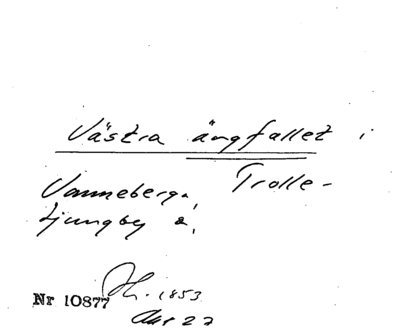 Västra ängfallet i
Vanneberga, Trolle-
Ljungby s.
Nr 10877
1853